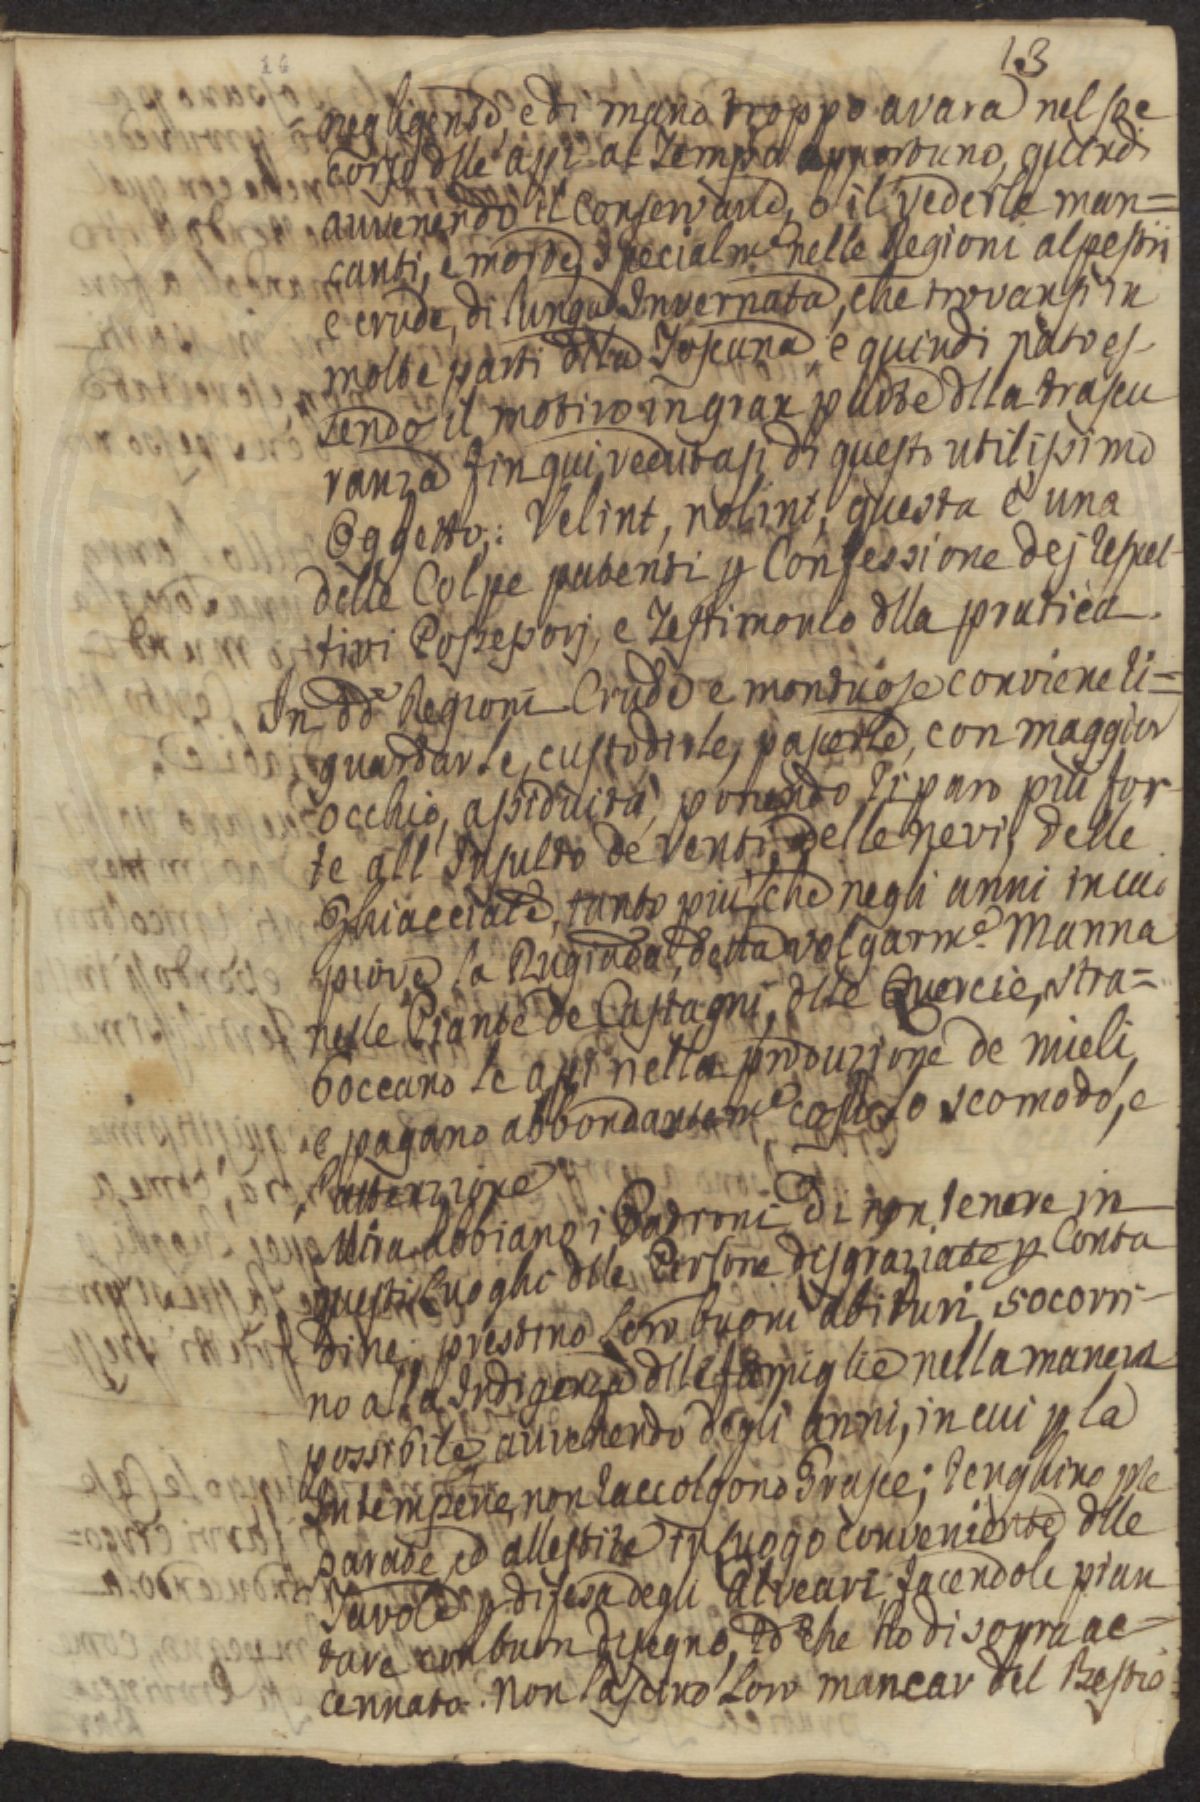 13
negligenti, e di mano troppo avara nel soc
corso dlle api al Tempo opportuno, quindi
avvenendo il conservarle, o il vederle man=
canti, e morte, specialm.e nelle Regioni alpestri
e crude, di lunga Invernata, che trovansi in
molte parti dlla Toscana, e quindi nato es-
sendo il motivo in gran parte dlla trascu
ranza fin qui vedutasi di questo utilissimo
Oggetto: Velint, nolint, questa è una
delle Colpe patenti p Confessione dej respet-
tivi Possessorj, e Testimonio dlla pratica.
In dde Regioni Crude e montuose conviene ri=
guardarle, custodirle, pascerle, con maggior
occhio, assiduità, ponendo riparo più for-
te all' Insulto de venti, delle nevi, delle
Ghiacciate, tanto più che negli anni in cui
piove la Rugiada, detta volgarm.e Manna
nelle Piante de Castagni, dlle Quercie, stra=
boccano le api nella produzione de mieli,
e pagano abbondantem.e lo scomodo, e
l'attenzione
Mira abbiano i Padroni di non tenere in
questi Luoghi dlle Persone disgraziate p Conta
dine; prestino Loro buoni abituri, socorri-
no alla Indigenza dlle famiglie nella maniera
possibile, avvenendo degli anni, in cui p la
Intemperie non raccolgono Grasce; tenghino pre
parate, ed allestite in Luogo conveniente dlle
Tavole p difesa degli Alveari, facendole pian
tare con buon disegno, ed che ho di sopra ac=
cennato. Non lascino Loro mancar del Bestio